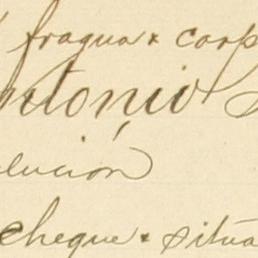 fragua & carp
ntonio
olución
cheque & situa